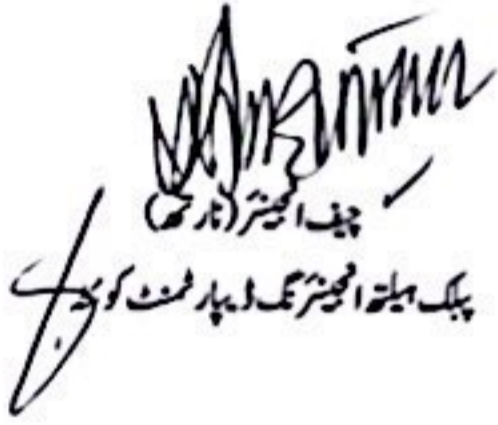 چیف انجینئر (نارتھ)
پبلک ہیلتھ انجینئرنگ ڈیپارٹمنٹ کوئٹہ